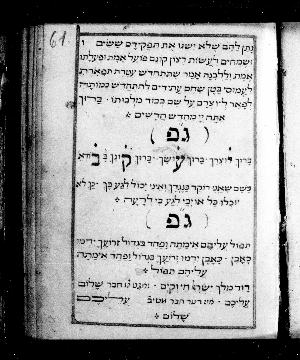 61
נתן להם שלא ישנו את תפקידם ששים
ושמחים לעשות רצון קונם פועל אמת ופעלתו
אמת וללבנה אמר שתתחדש עטרת תפארת
לעמוסי בטן שהם עתידים להתחדש כמותה
לפאר ליוצרם על שם כבוד מלכותו ברוך
אתה יי מחדש חדשים
( גפ )
ברוך יוצרך ברוך עושך ברוך קונך ברוך בוראך
כשם שאני רוקד כנגדך ואיני יכול לגע בך כך לא
יוכלו כל אויבי לגע בי לרעה
( גפ )
תפול עליהם אימתה ופחד בגדול זרועך ידמו
כאבן כאבן ידמו זרועך בגדול ופחד אימתה
עליהם תפול
דוד מלך ישראל חי וקים שלום
עליכם
שלום